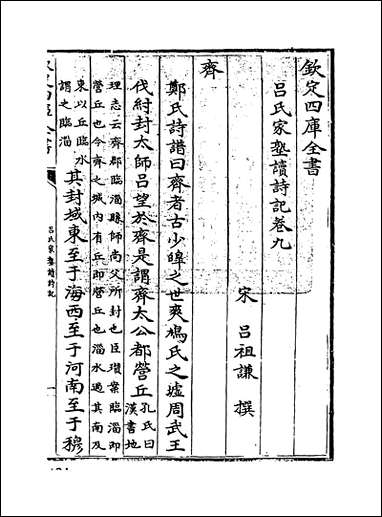 欽定四庫全書
呂氏家塾讀詩記卷九
宋 呂祖謙 撰
齊
鄭氏詩譜曰齊者古少皥之世爽鳩氏之墟周武王
伐紂封太師呂望於齊是謂齊太公都營丘
孔氏曰
漢書地
理志云齊郡臨淄縣師尚父所封也臣瓚案臨淄即
營丘也今齊之城內有丘即營丘也淄水過其南及
東以丘臨水
謂之臨淄
其封域東至于海西至于河南至于穆
呂氏家塾讀詩記
一